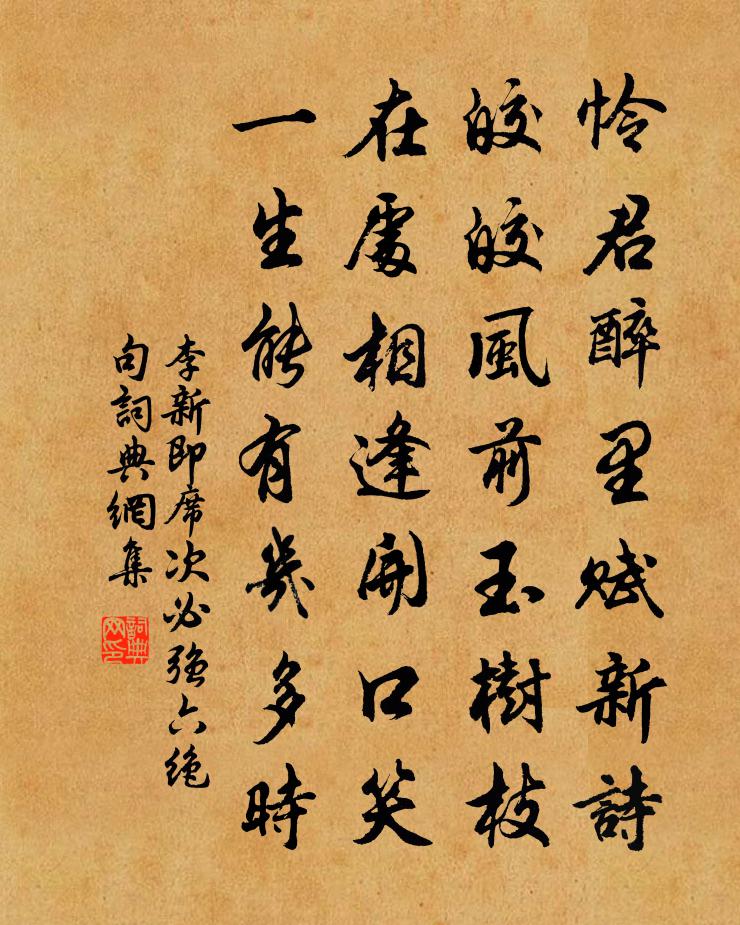 怜君醉里赋新詩
皎皎風前玉樹枝
在處相逢開口笑
一生能有幾多時
李新即席次必强六绝
句詞典網集
詞典
网印